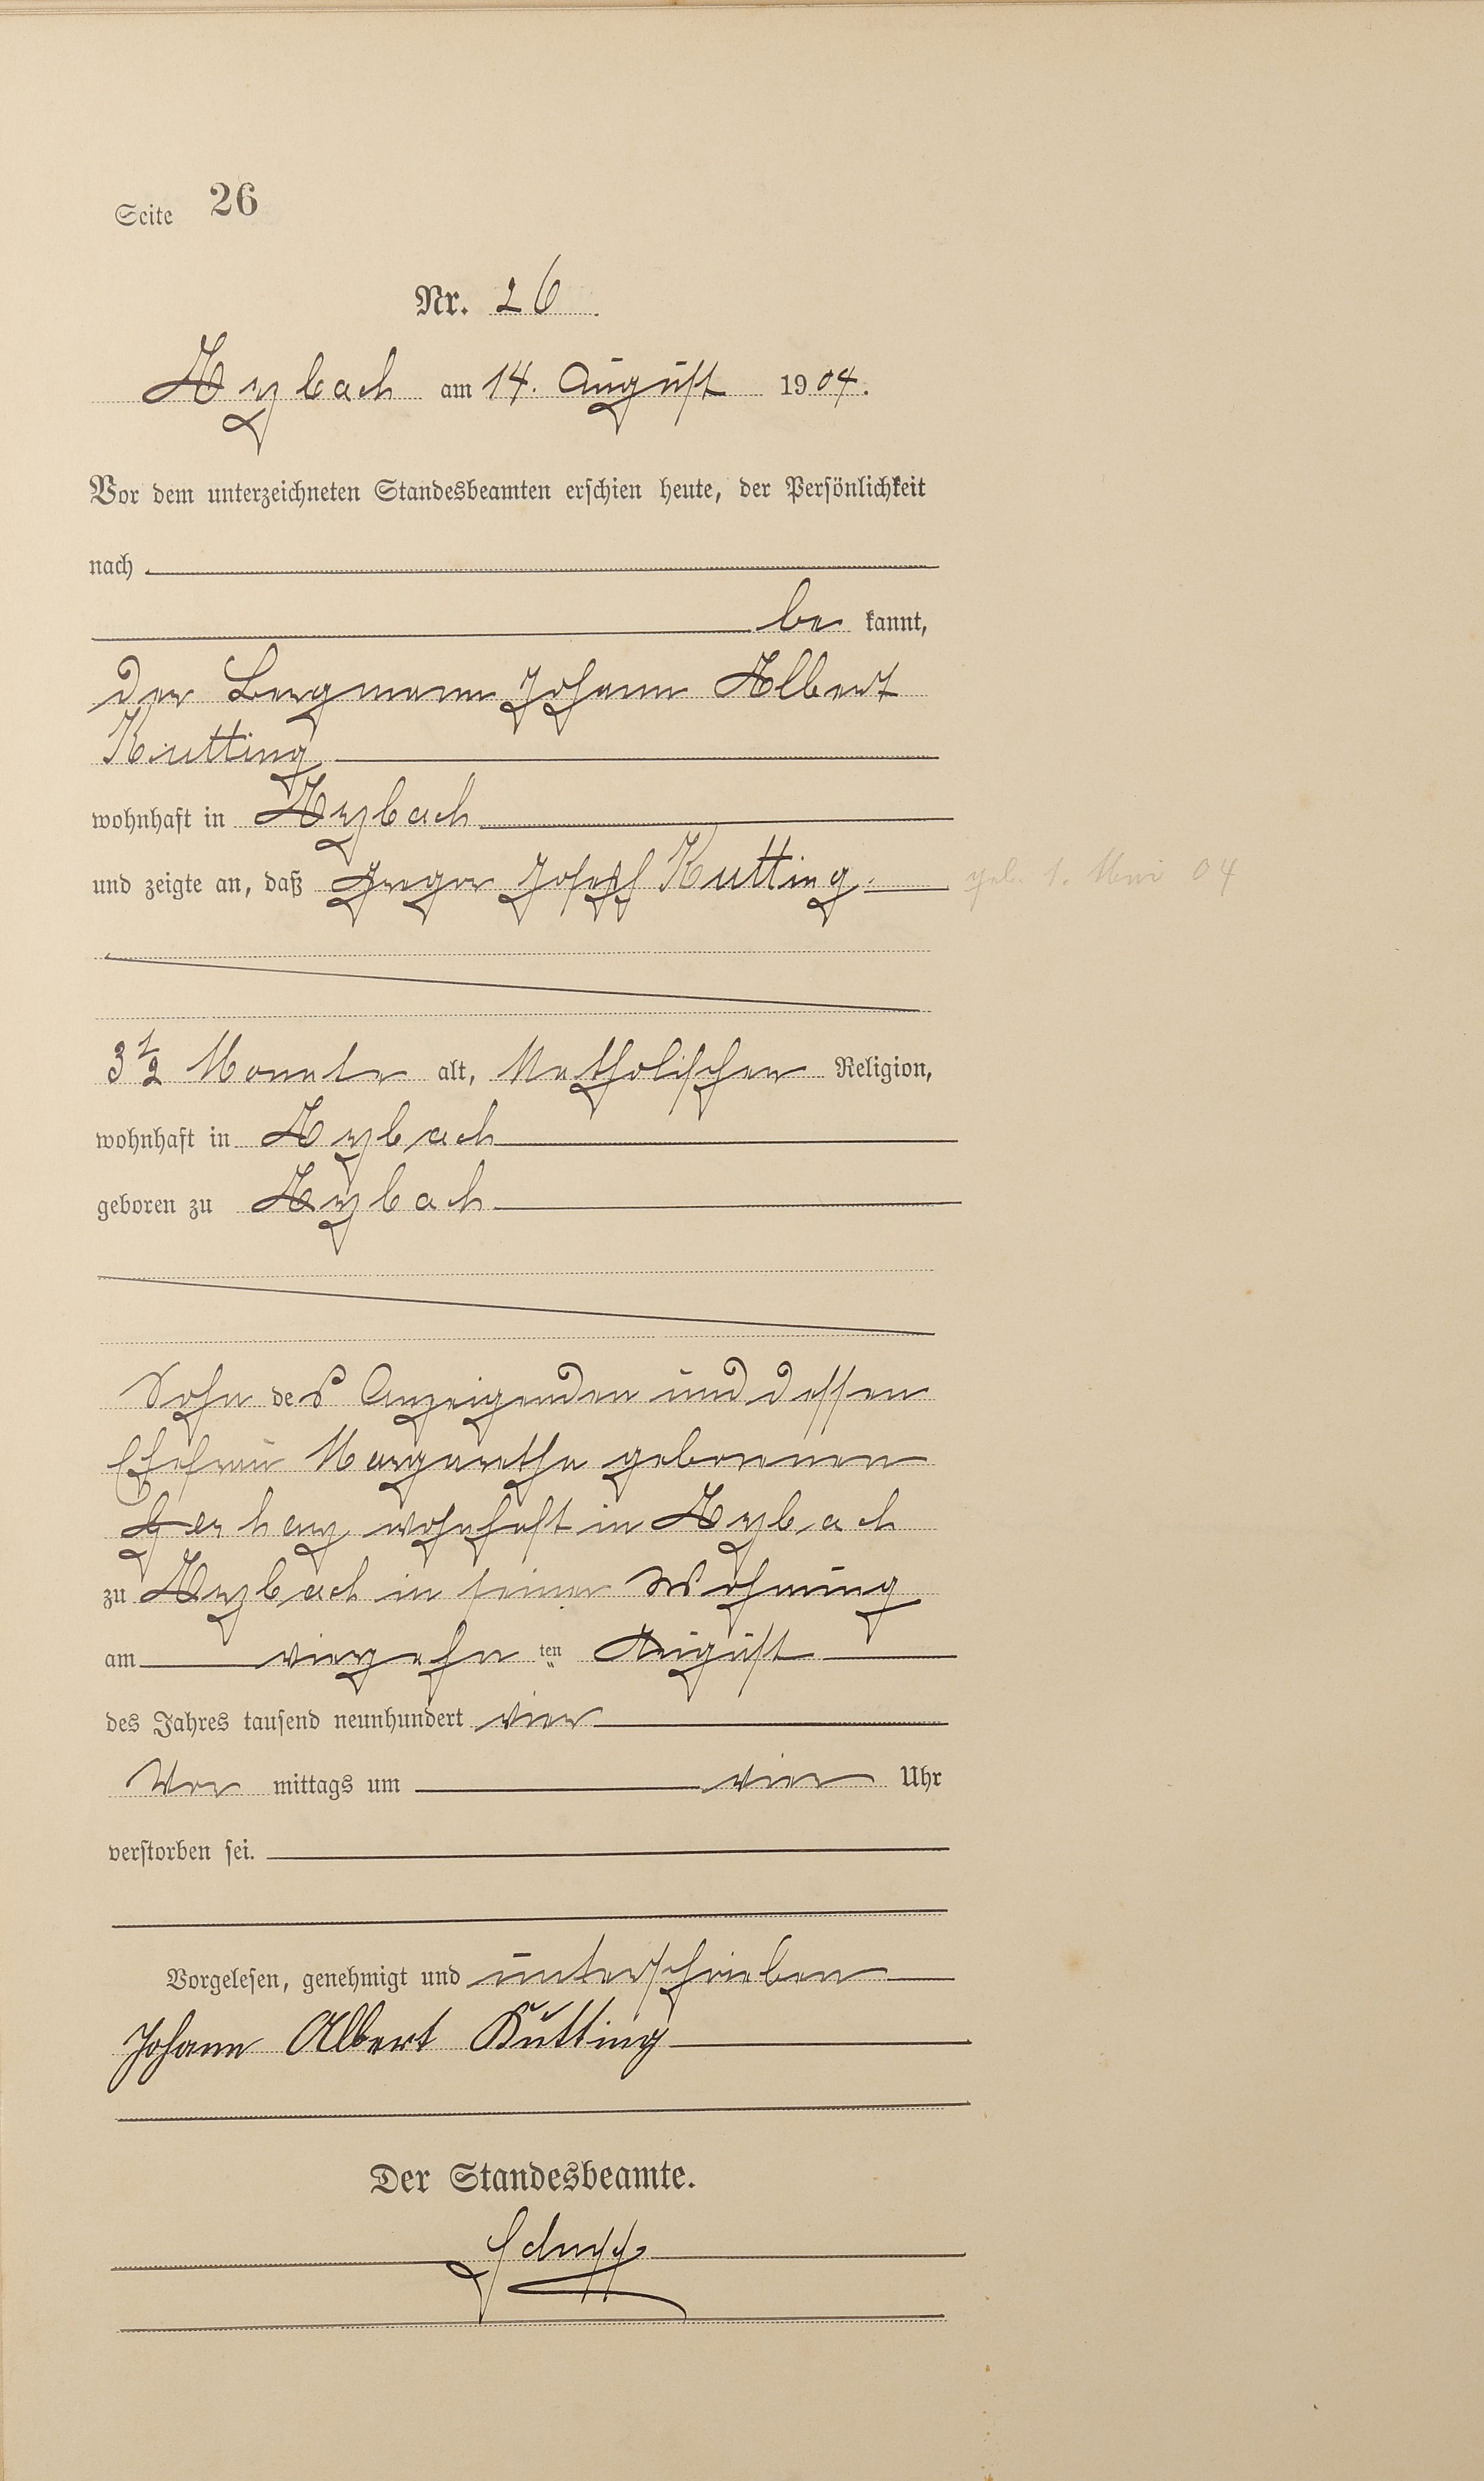 Seite 26
Nr. 26
Arzbach am 14. August 1904.
Vor dem unterzeichneten Standesbeamten erschien heute, der Persönlichkeit
nach
be kannt,
der Bergmann Johann Albert
Kutting
wohnhaft in Arzbach
und zeigte an, daß Gregor Joseph Kutting. geb. 1. Mai 04
3 1/2 Monate alt, Katholischer Religion,
wohnhaft in Arzbach
geboren zu Arzbach
Sohn des Anzeigenden und dessen
Ehefrau Margaretha geborenen
Gerharz wohnhaft in Arzbach
zu Arzbach in seiner Wohnung
am vierzehn ten August
des Jahres tausend neunhundert vier
Vor mittags um vier Uhr
verstorben sei.
Vorgelesen, genehmigt und unterschrieben
Johann Albert Kutting
Der Standesbeamte.
Schupp